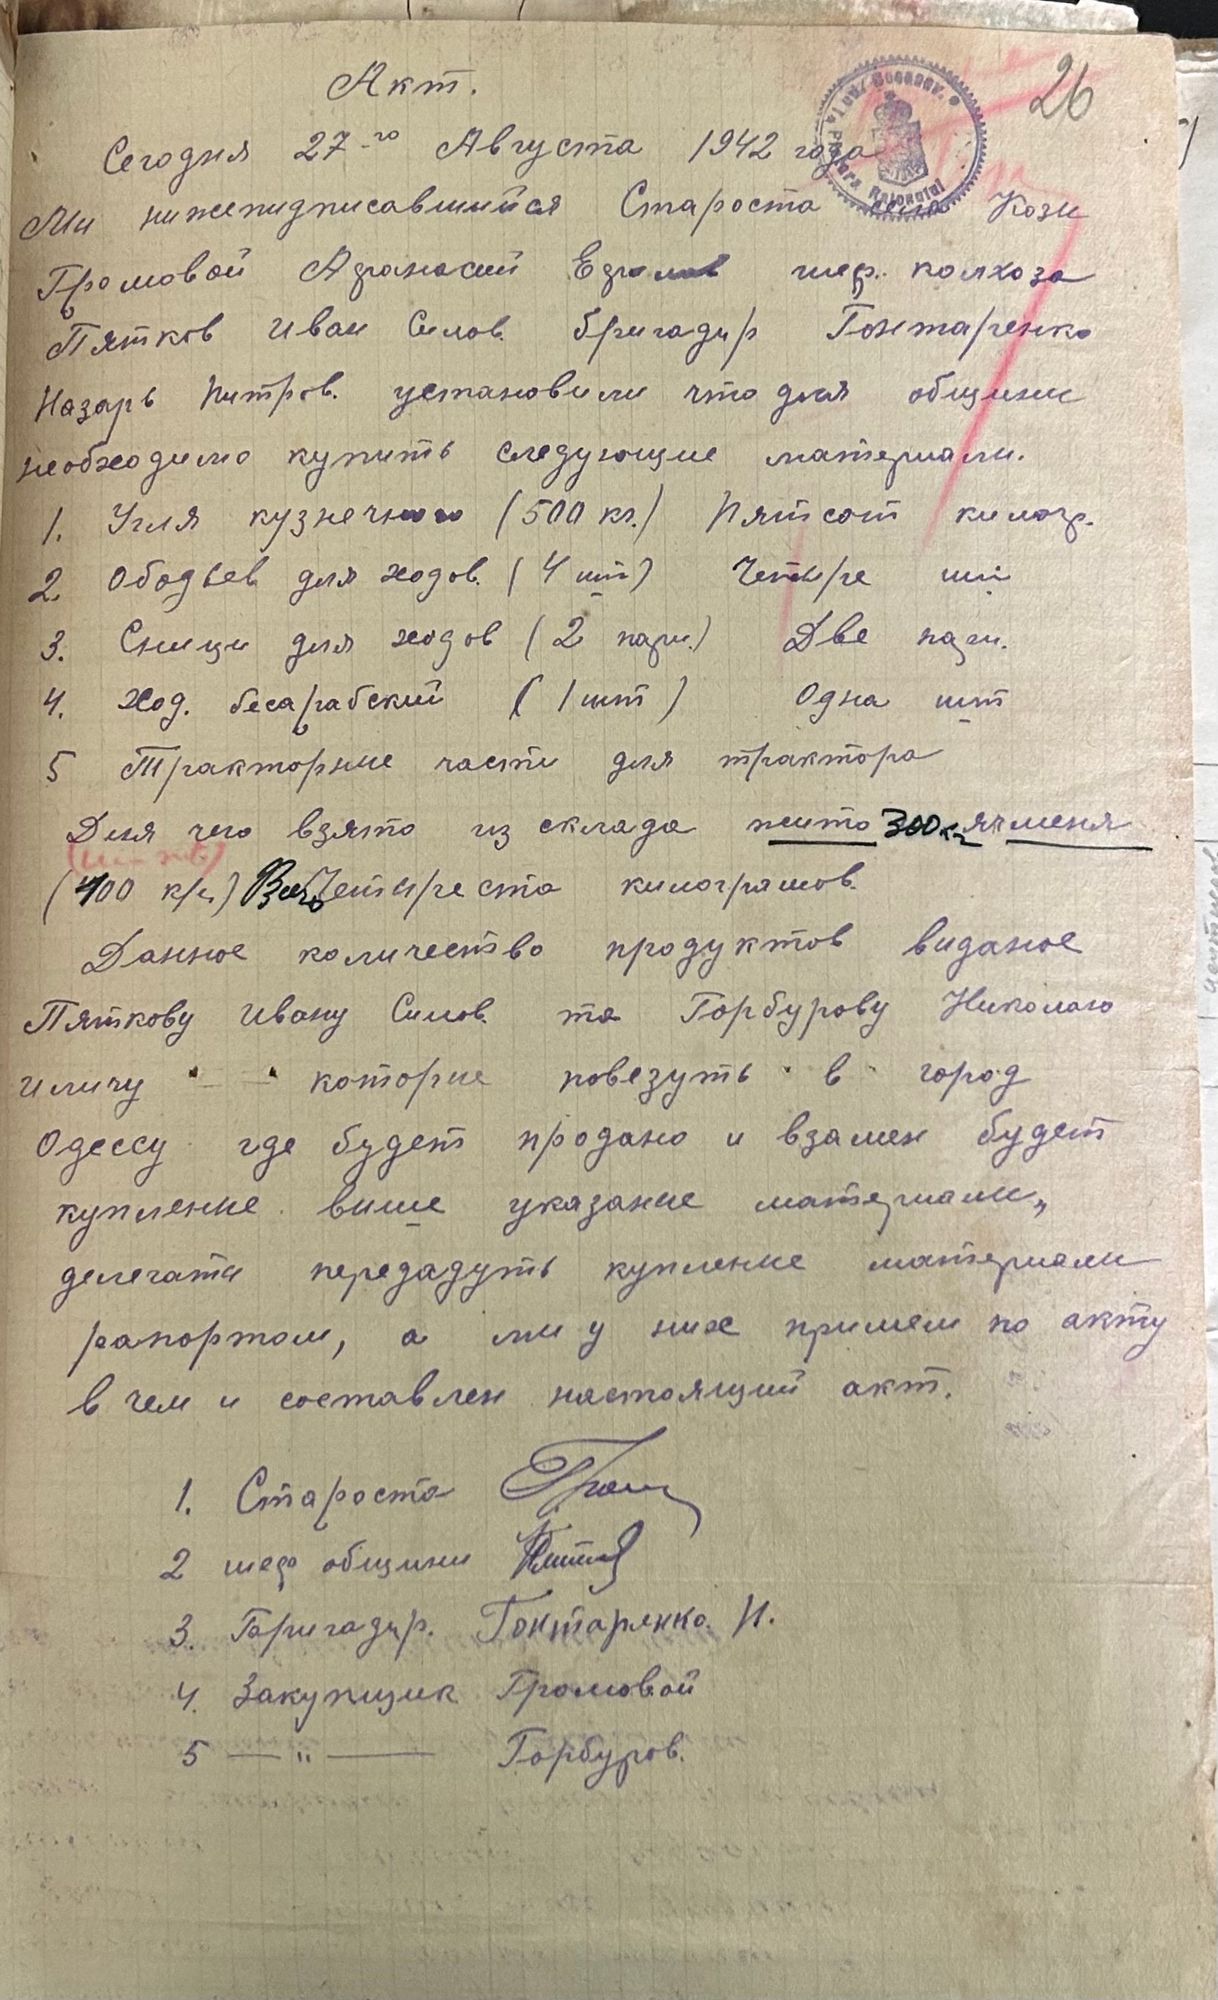 26
Акт.
Сегодня 27-го Августа 1942 года
Ми нижепидписавшийся Староста села Кози
Громовой Афанасий шеф. колхоза
Пятков Иван Силов. бригадир Гонтаренко
Назарь Питров. установили что для общини
необходимо купить следующие материали.
1. Угля кузнечного (500 кг.) Пятсот килогр.
2. Ободьев для ходов. (4 шт) Четыре шт
3. Сници для ходов (2 пари.) Две пари.
4. Ход. бесарабский (1 шт) Одна шт
5 Тракторние части для трактора
Для чего взято из склада жито 300 кг ячменя
(400 кг) Четыреста килограмов.
Данное количество продуктов виданое
Пяткову Ивану Силов. та Горбурову Николаю
Иличу которие повезуть в город
Одессу где будет продано и взамен будет
купление више указание материали,,
делегати передадуть купление материали
рапортом, а ми у них примем по акту
в чем и составлен настоящий акт.
1. Староста
2 шеф общини
3. Бригадир. Гонтарянко. Н.
4. Закупщик Громовой
5 — " — Горбуров.